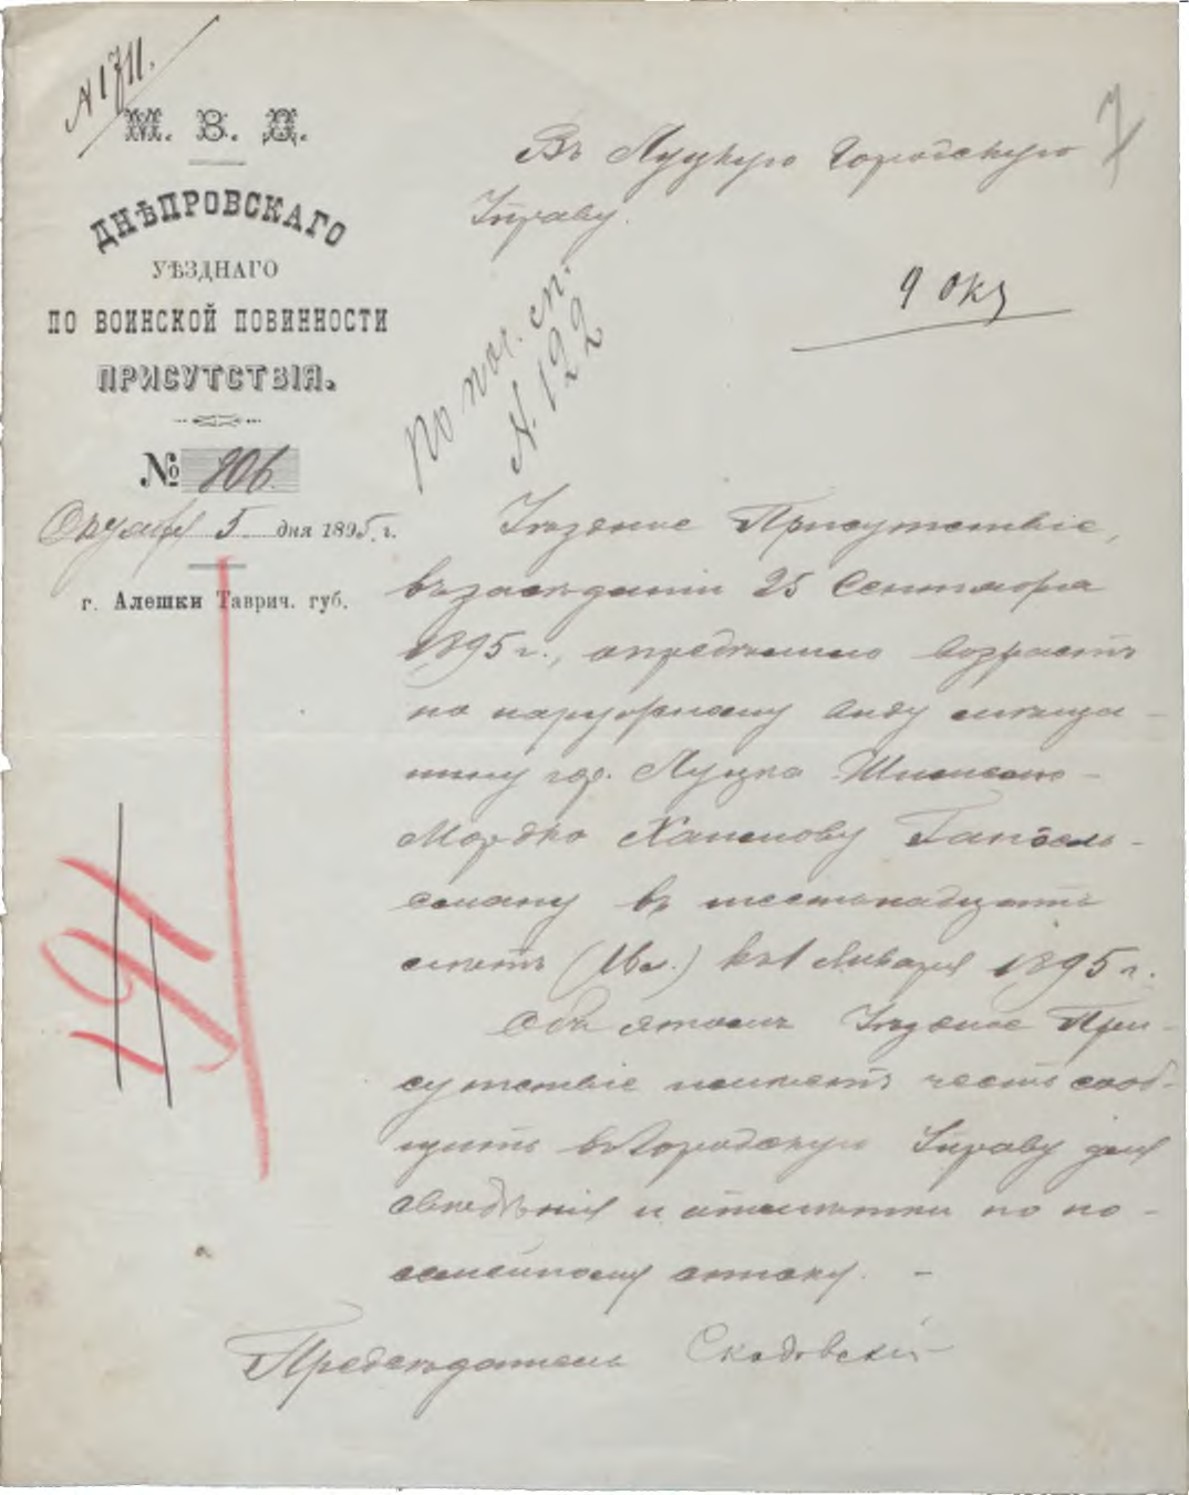 № 1711.
М. В. Д.
ДНѢПРОВСКАГО
УѢЗДНАГО
ПО ВОИНСКОЙ ПОВИННОСТИ
ПРИСУТСТВІЯ.
№ 806
Октября 5 дня 1895 г.
г. Алешки Таврич. губ.
7
Въ Луцкую Городскую
Управу.
9 Окт
по пос. сп.
№ 199
22
Уѣздное Присутствіе,
въ засѣданіи 25 Сентября
1895 г., опредѣлило возрастъ
по наружному виду мѣща-
нину гор. Луцка Шмилю-
Мордко Хаимову Гапоель-
сману въ шестнадцать
лѣтъ (16 л.) къ 1 Января 1895 г.
Объ этомъ Уѣздное При-
сутствіе имѣетъ честь сооб-
щить въ Городскую Управу для
свѣдѣнія и отмѣтки по по-
семейному списку. -
Предсѣдатель Скадовскій
191